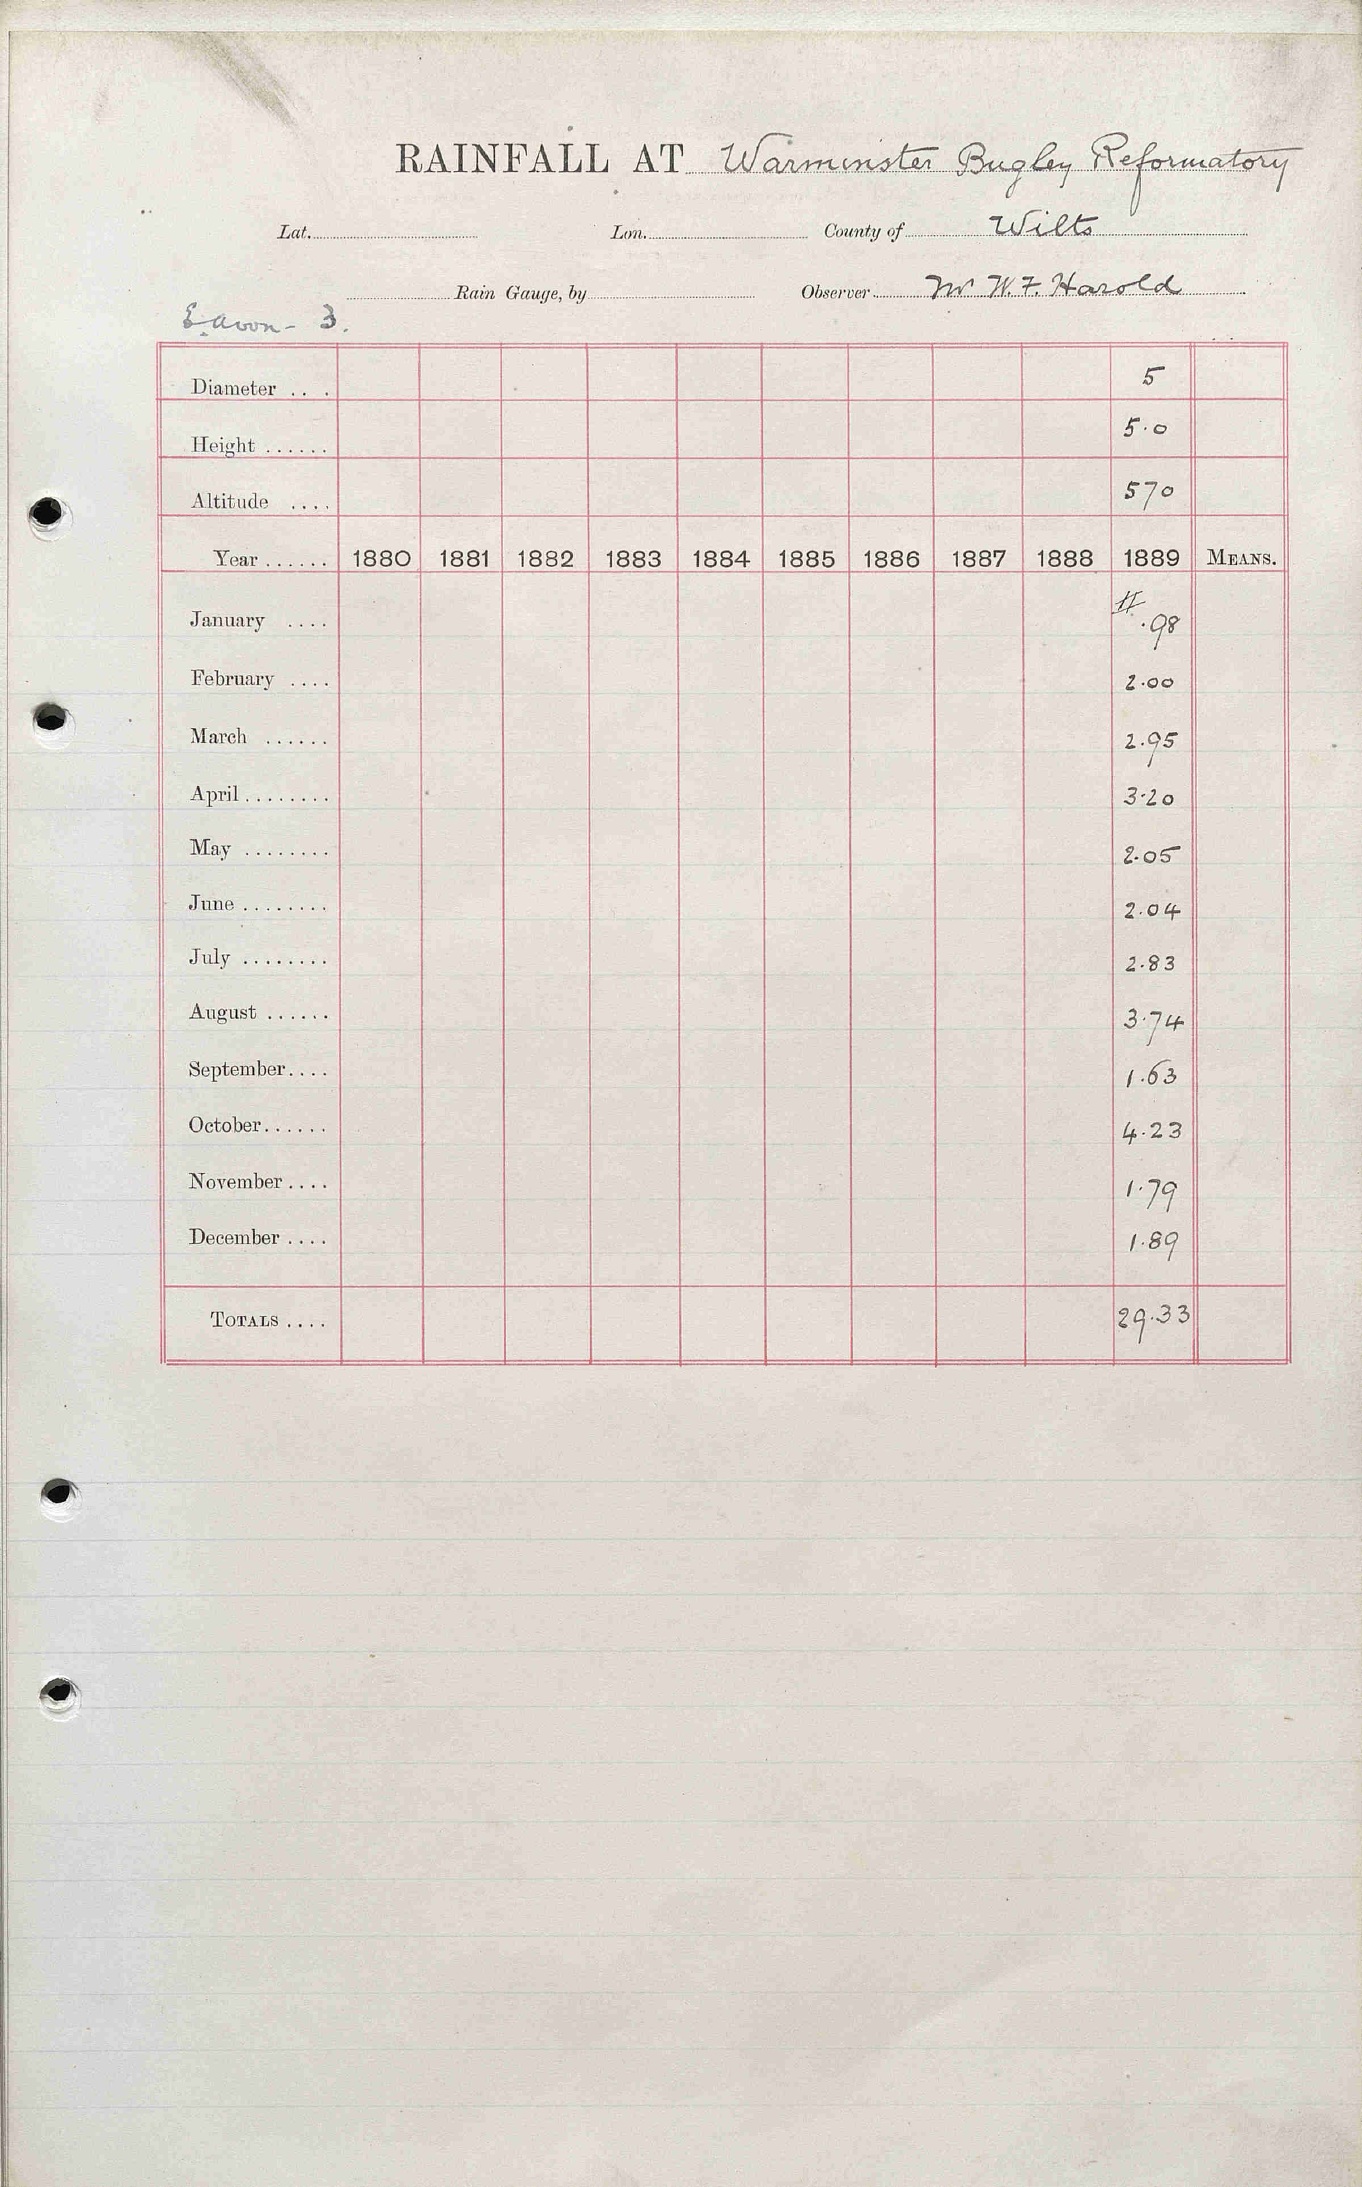 RAINFALL AT Warminster Bugley Reformatory
Lat. Lon. County of Wilts
Rain Gauge, by Observer Mr W. F. Harold
E. Avon - 3.
Diameter .... 5
Height ...... 5.0
Altitude .... 570
Year ...... 1880 1881 1882 1883 1884 1885 1886 1887 1888 1889 MEANS.
January .... # .98
February .... 2.00
March ...... 2.95
April ........ 3.20
May ........ 2.05
June ........ 2.04
July ........ 2.83
August ...... 3.74
September .... 1.63
October ...... 4.23
November .... 1.79
December .... 1.89
TOTALS .... 29.33